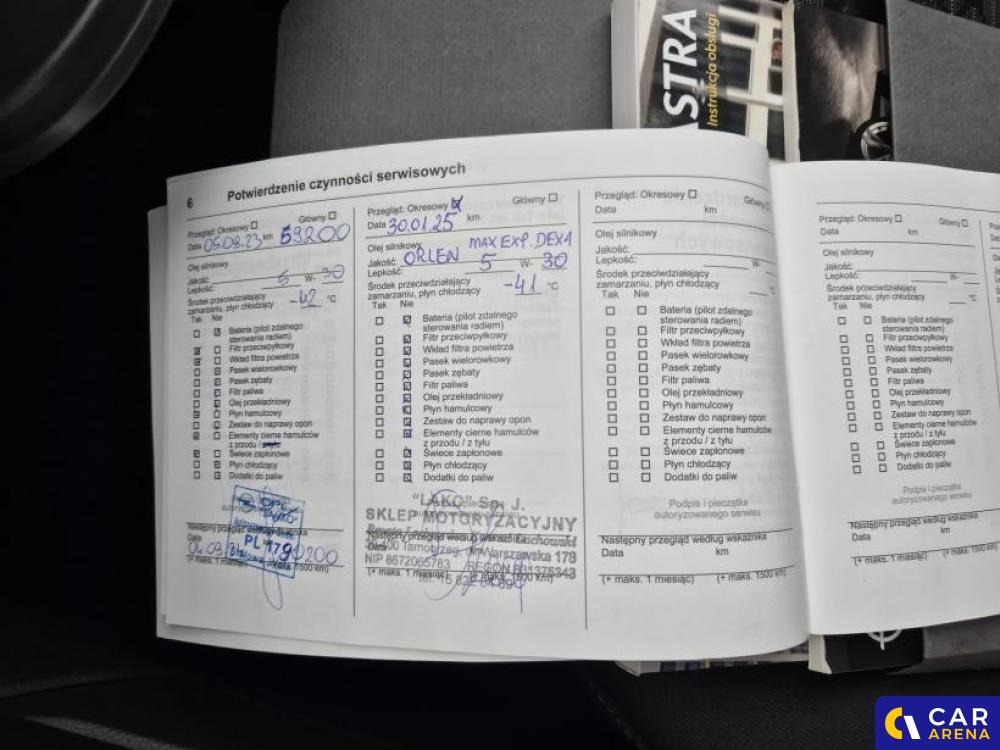 ASTRA
Instrukcja obsługi
6
Potwierdzenie czynności serwisowych
Przegląd: Okresowy
Główny
Data 05.09.23 km 59200
Olej silnikowy
Jakość:
Lepkość: 5 W- 30
Środek przeciwdziałający
zamarzaniu, płyn chłodzący -42 °C
Tak Nie
Bateria (pilot zdalnego
sterowania radiem)
Filtr przeciwpyłkowy
Wkład filtra powietrza
Pasek wielorowkowy
Pasek zębaty
Filtr paliwa
Olej przekładniowy
Płyn hamulcowy
Zestaw do naprawy opon
Elementy cierne hamulców
z przodu / z tyłu
Świece zapłonowe
Płyn chłodzący
Dodatki do paliw
OPEL
Następny przegląd według wskaźnika
Data
PL
(+ maks. 1 miesiąc)
1500 km)
Przegląd: Okresowy
Główny
Data 30.01.25 km
Olej silnikowy
Jakość: ORLEN MAX EXP. DEX1
Lepkość: 5 W- 30
Środek przeciwdziałający
zamarzaniu, płyn chłodzący -41 °C
Tak Nie
Bateria (pilot zdalnego
sterowania radiem)
Filtr przeciwpyłkowy
Wkład filtra powietrza
Pasek wielorowkowy
Pasek zębaty
Filtr paliwa
Olej przekładniowy
Płyn hamulcowy
Zestaw do naprawy opon
Elementy cierne hamulców
z przodu / z tyłu
Świece zapłonowe
Płyn chłodzący
Dodatki do paliw
"ŁAKO" Sp. J.
SKLEP MOTORYZACYJNY
Następny przegląd według wskaźnika
Data
Warszawska 178
NIP 8672065783 REGON 831375343
(+ maks. 1 miesiąc) (+ maks. 1500 km)
Przegląd: Okresowy
Główny
Data km
Olej silnikowy
Jakość:
Lepkość: W-
Środek przeciwdziałający
zamarzaniu, płyn chłodzący °C
Tak Nie
Bateria (pilot zdalnego
sterowania radiem)
Filtr przeciwpyłkowy
Wkład filtra powietrza
Pasek wielorowkowy
Pasek zębaty
Filtr paliwa
Olej przekładniowy
Płyn hamulcowy
Zestaw do naprawy opon
Elementy cierne hamulców
z przodu / z tyłu
Świece zapłonowe
Płyn chłodzący
Dodatki do paliw
Podpis i pieczątka
autoryzowanego serwisu
Następny przegląd według wskaźnika
Data km
(+ maks. 1 miesiąc) (+ maks. 1500 km)
Przegląd: Okresowy
Główny
Data km
Olej silnikowy
Jakość:
Lepkość: W-
Środek przeciwdziałający
zamarzaniu, płyn chłodzący °C
Tak Nie
Bateria (pilot zdalnego
sterowania radiem)
Filtr przeciwpyłkowy
Wkład filtra powietrza
Pasek wielorowkowy
Pasek zębaty
Filtr paliwa
Olej przekładniowy
Płyn hamulcowy
Zestaw do naprawy opon
Elementy cierne hamulców
z przodu / z tyłu
Świece zapłonowe
Płyn chłodzący
Dodatki do paliw
Podpis i pieczątka
autoryzowanego serwisu
Następny przegląd według wskaźnika
Data km
(+ maks. 1 miesiąc) (+ maks. 1500 km)
CAR
ARENA